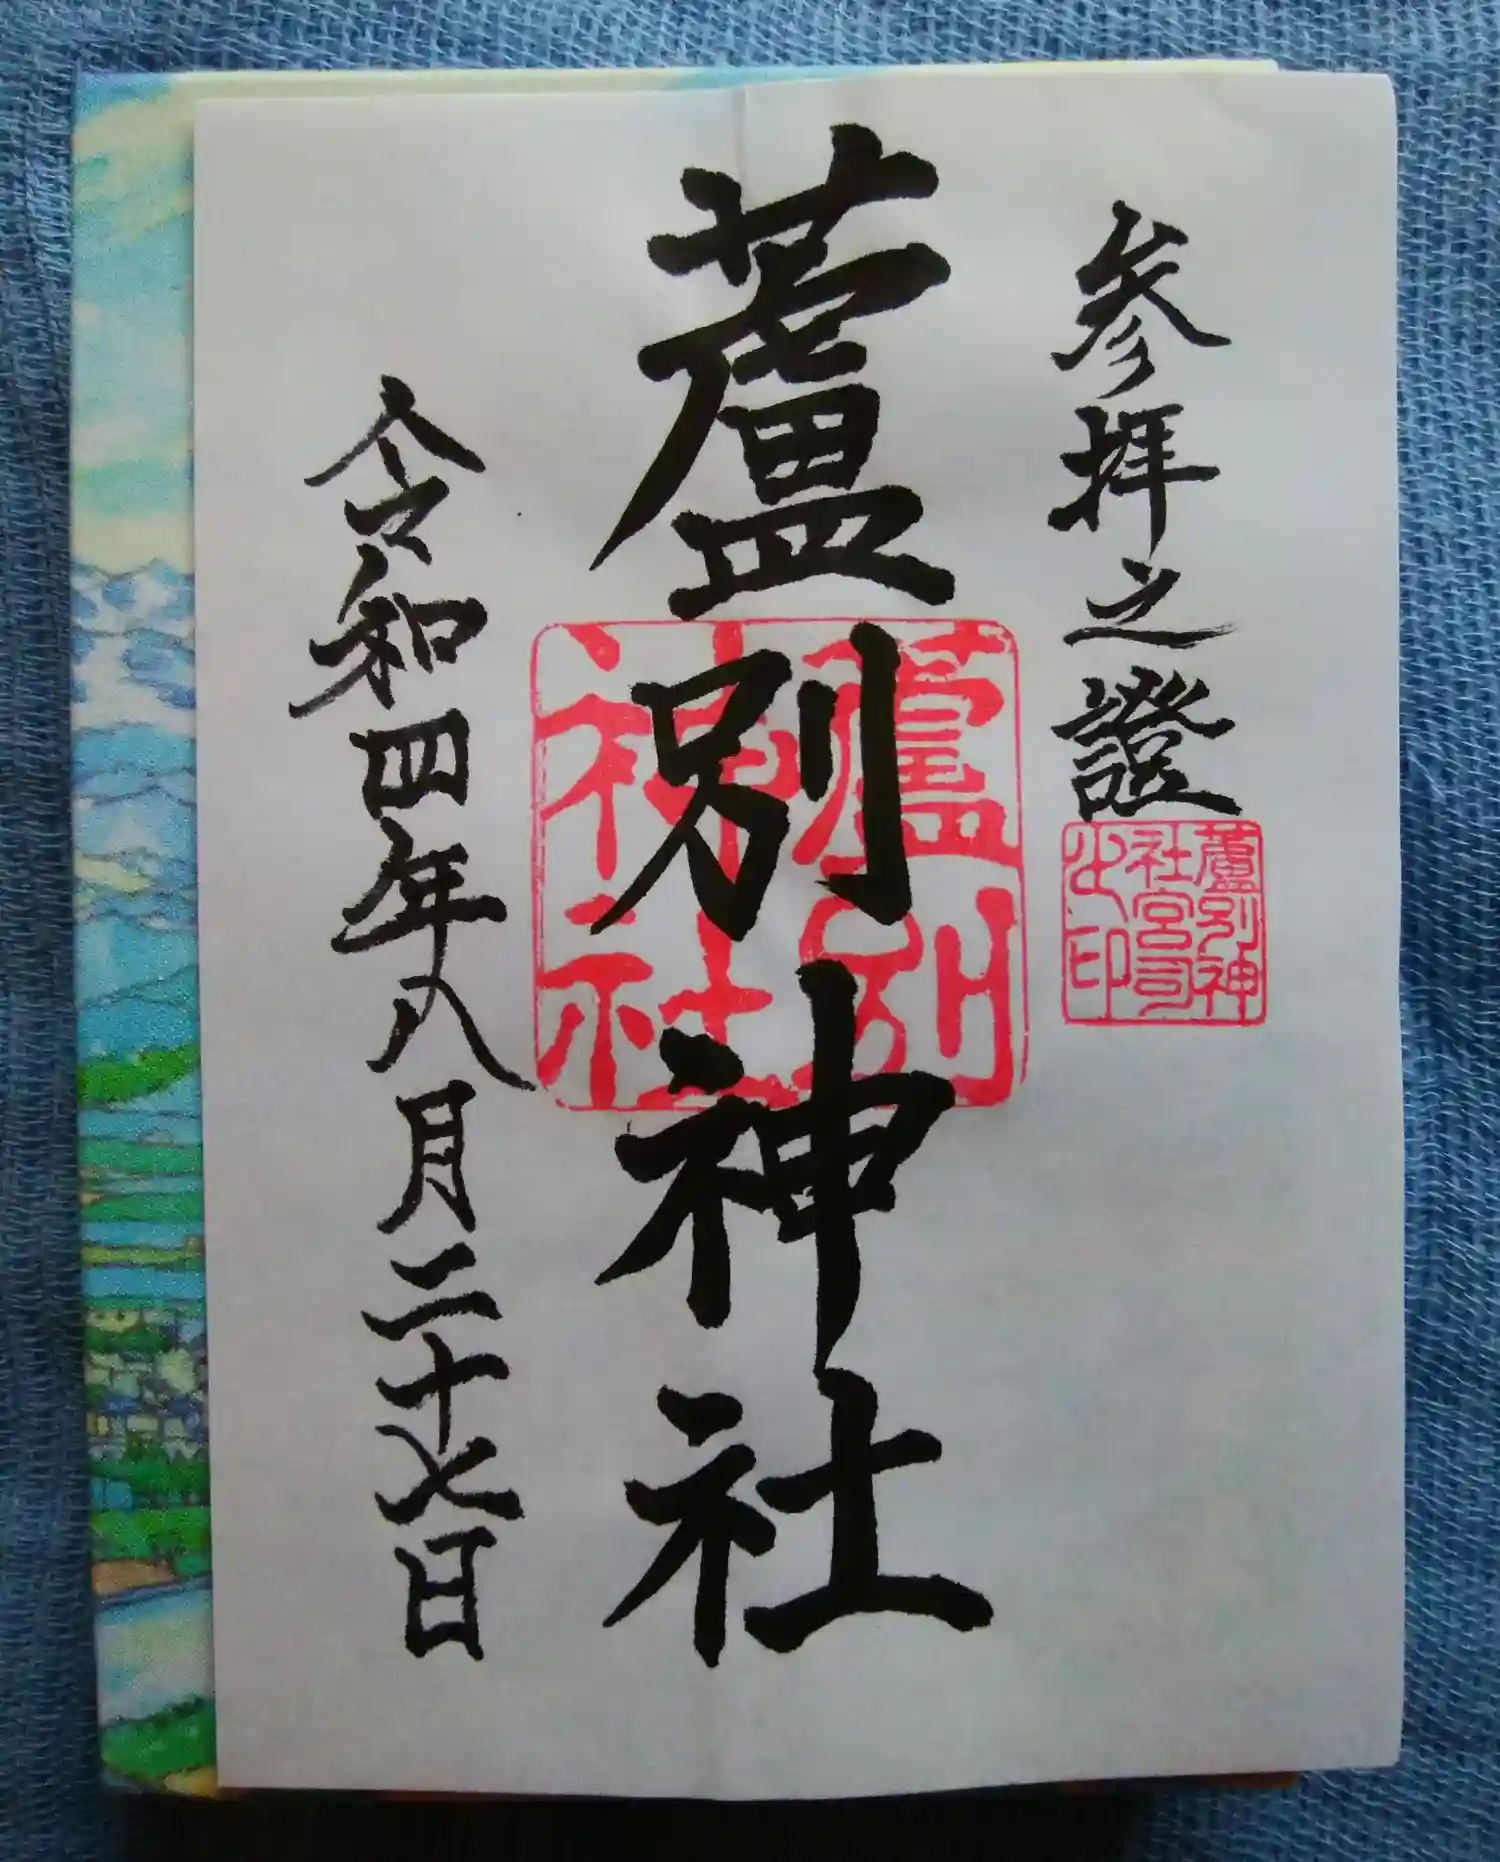 参拝之證
蘆別神社宮司之印
蘆別神社
蘆別神社
令和四年八月二十七日